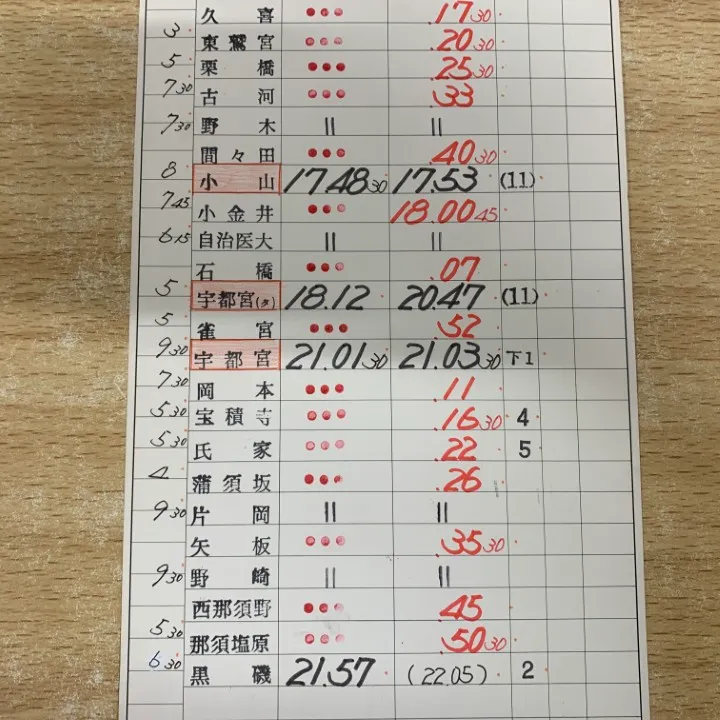 久喜 ●●● .17 30
3 東鷲宮 ●●● .20 30
5 栗橋 ●●● .25 30
7 30 古河 ●●● .33
7 30 野木 || ||
間々田 ●●● .40 30
8 小山 17.48 30 17.53 (11)
7 45 小金井 ●●● 18.00 45
6 15 自治医大 || ||
石橋 ●●● .07
5 宇都宮(タ) 18.12 20.47 (11)
5 雀宮 ●●● .52
9 30 宇都宮 21.01 30 21.03 30 下1
7 30 岡本 ●●● .11
5 30 宝積寺 ●●● .16 30 4
5 30 氏家 ●●● .22 5
4 蒲須坂 ●●● .26
9 30 片岡 || ||
矢板 ●●● .35 30
9 30 野崎 || ||
西那須野 ●●● .45
5 30 那須塩原 ●●● .50 30
6 30 黒磯 21.57 (22.05) 2